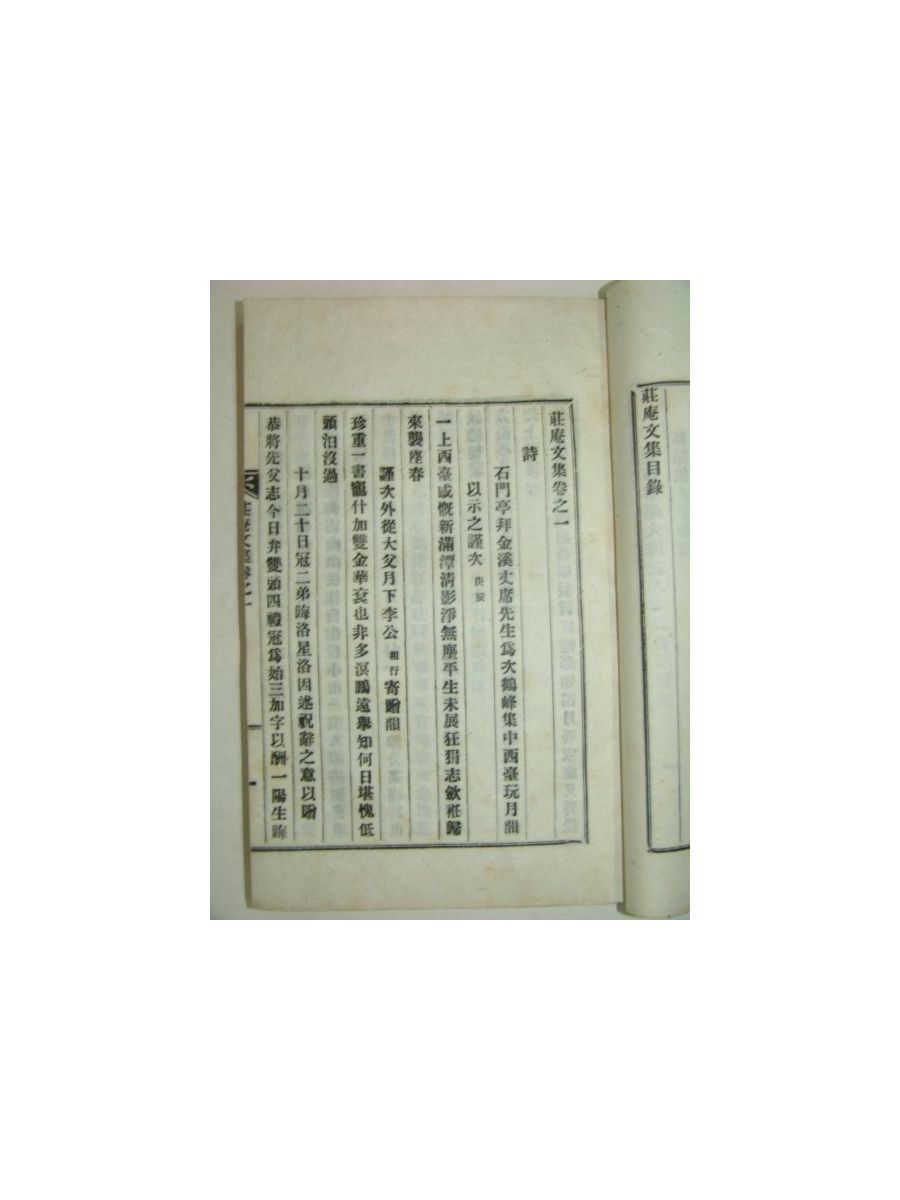 莊庵文集目錄
莊庵文集卷之一
詩
石門亭拜金溪丈席先生爲次鶴峰集中西臺玩月韻
以示之謹次
一上西臺感慨新滿潭淸影淨無塵平生未展狂狷志斂袵歸
來襲座春
謹次外從大父月下李公相行寄贈韻
珍重一書寵什加雙金華袞也非多溟鵬遠擧知何日堪愧低
頭汨沒過
十月二十日冠二弟晦洛星洛因述祝辭之意以贈
恭將先父志今日弁雙頭四禮冠爲始三加字以酬一陽生晦
莊庵文集卷之一
一